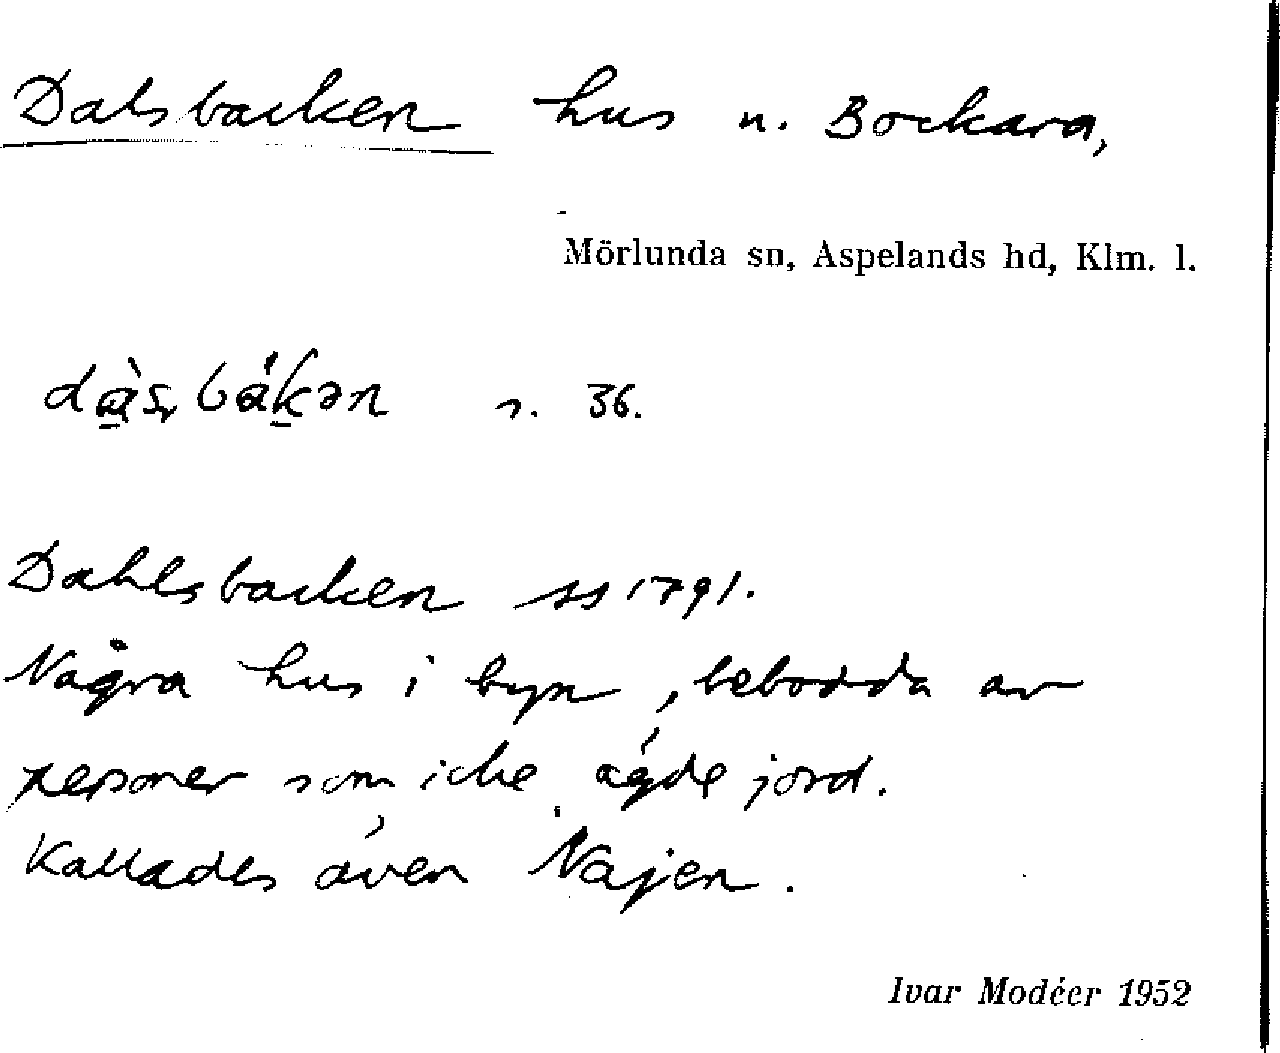 Dalsbacken hus n. Bockara,
Mörlunda sn, Aspelands hd, Klm. l.
s. 36.
Dahlsbacken ss 1791.
Några hus i byn, bebodda av
personer som icke ägde jord.
Kallades även Najen.
Ivar Modéer 1952